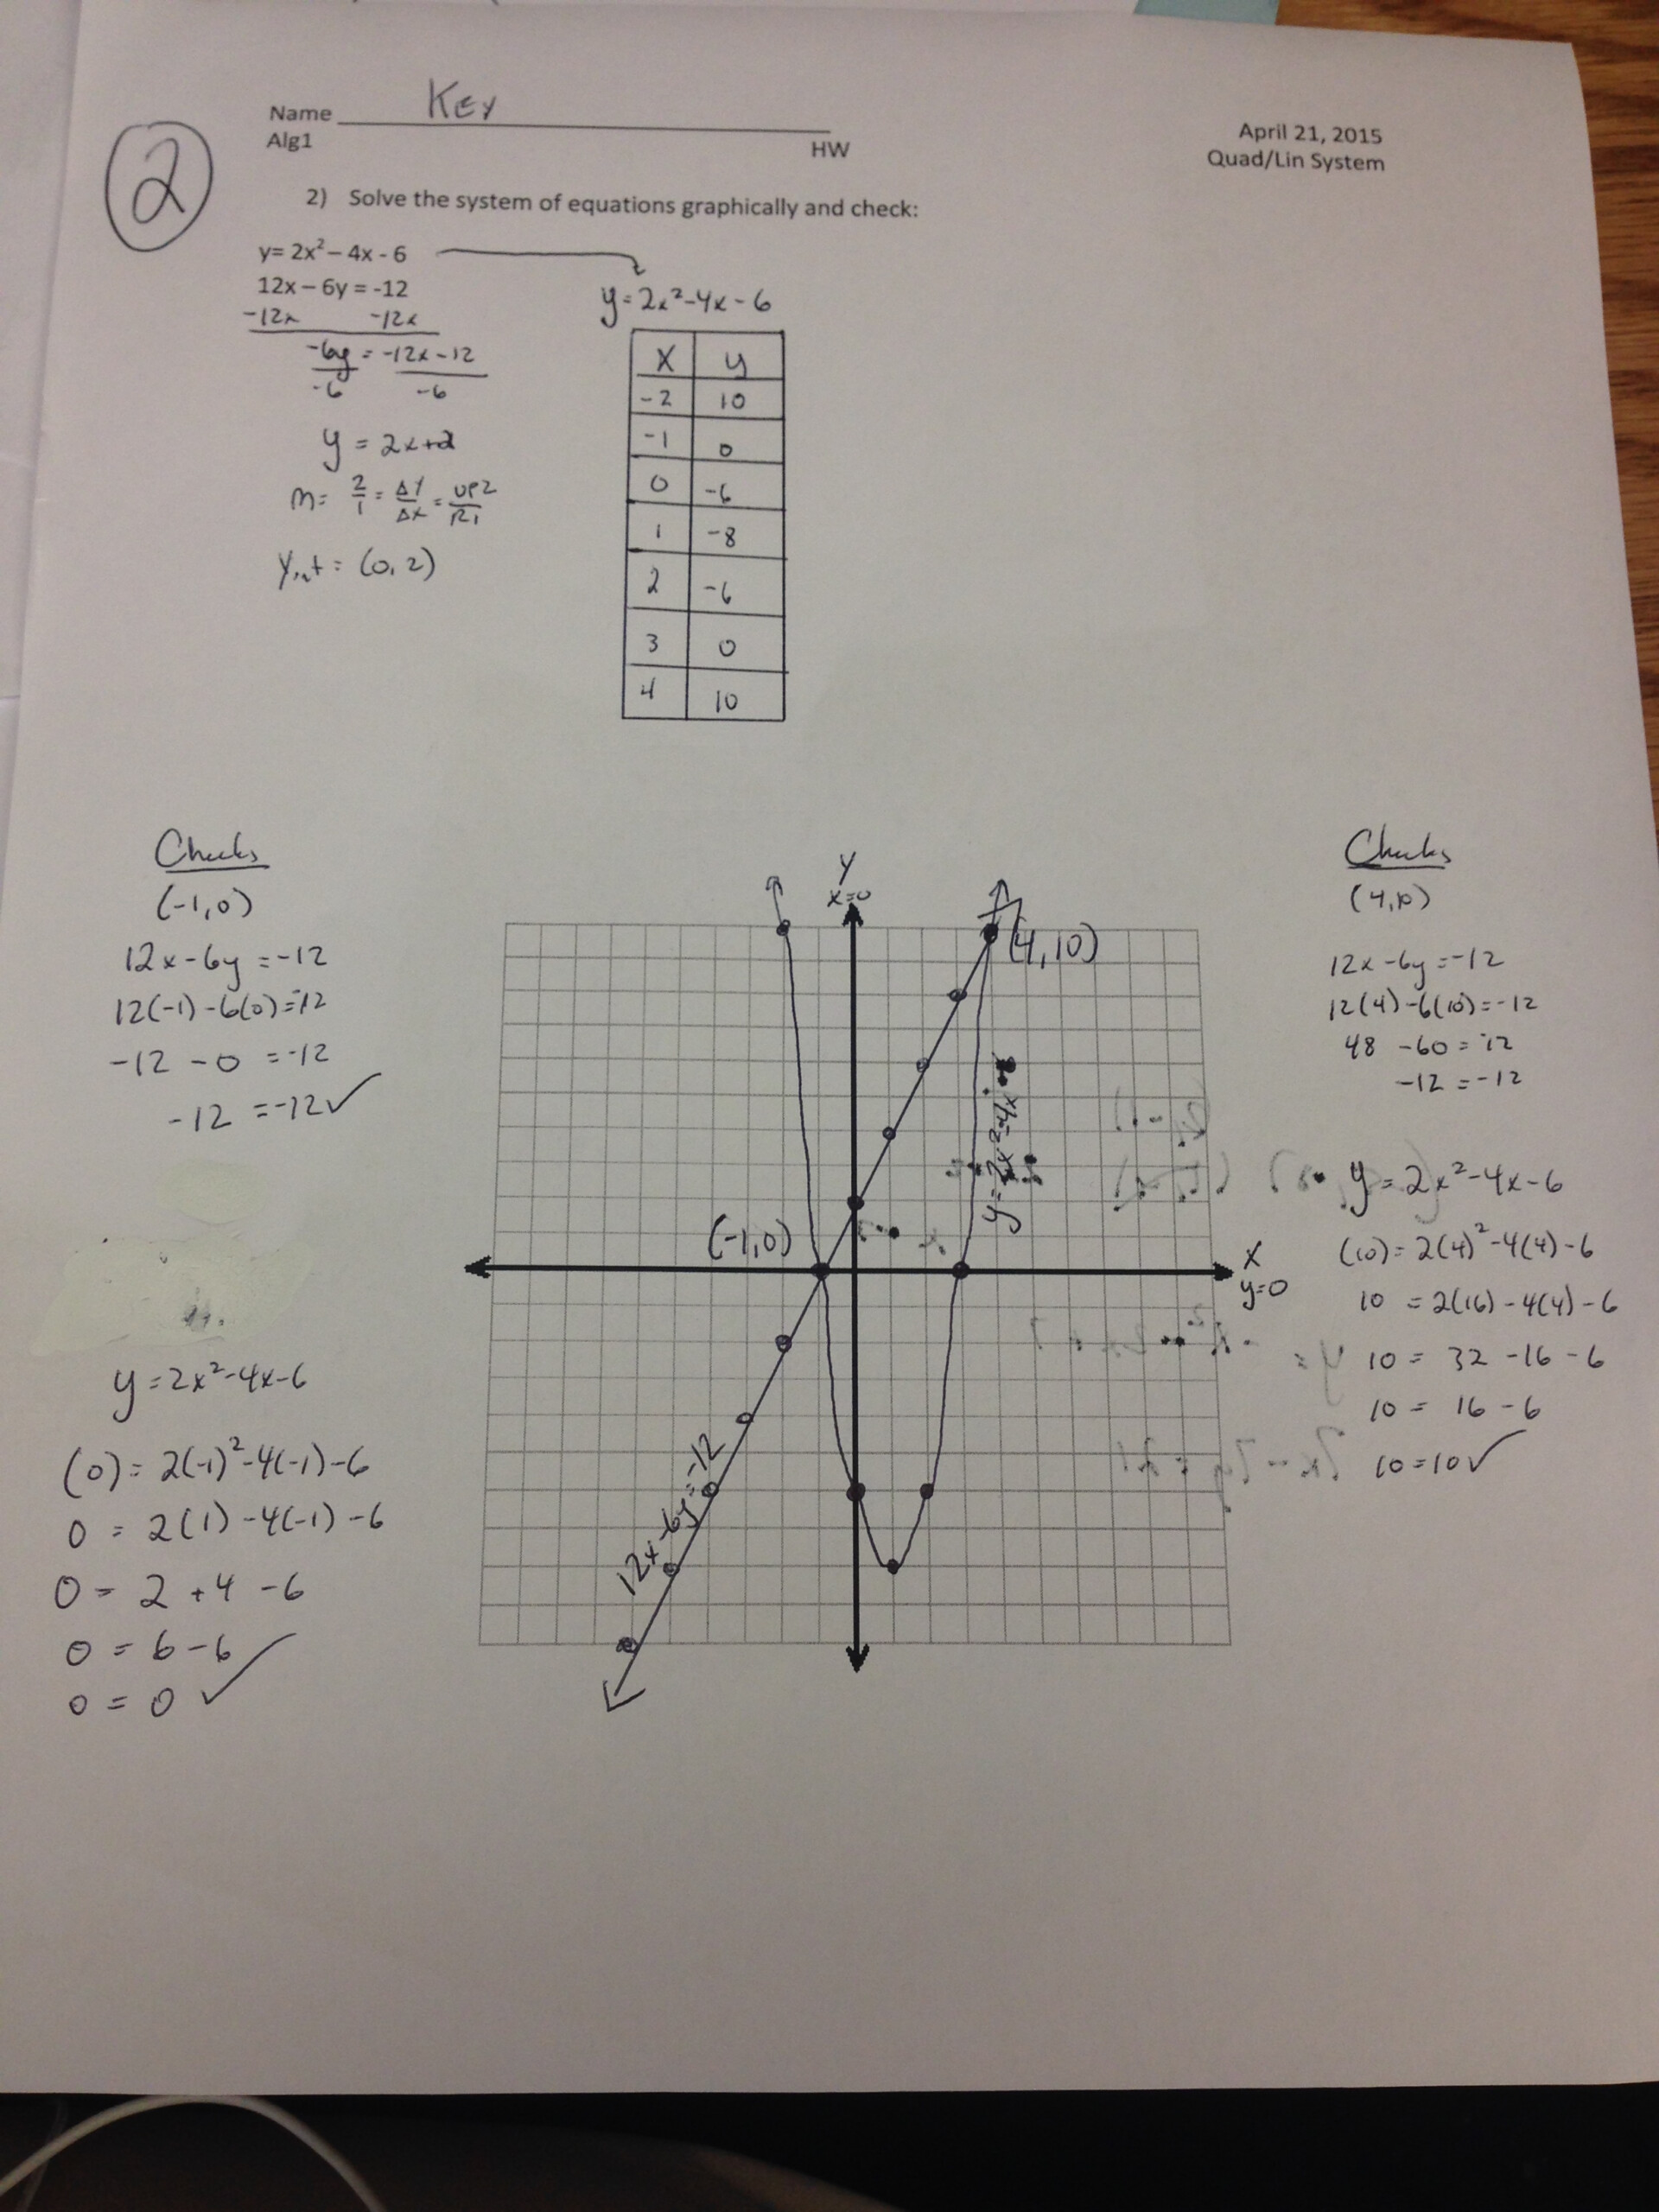 2
Name KEY
Alg1
HW
April 21, 2015
Quad/Lin System
2) Solve the system of equations graphically and check:
y= 2x² – 4x - 6
12x – 6y = -12
-12x -12x
-6y = -12x -12
-6 -6
y = 2x+2
m= 2/1 = ΔY/ΔX = UP2/R1
Yint = (0, 2)
y = 2x²-4x-6
X y
-2 10
-1 0
0 -6
1 -8
2 -6
3 0
4 10
Checks
(-1,0)
12x-6y = -12
12(-1) -6(0) = -12
-12 -0 = -12
-12 = -12 ✓
y = 2x²-4x-6
(0) = 2(-1)²-4(-1)-6
0 = 2(1) -4(-1) -6
0 = 2 +4 -6
0 = 6-6
0 = 0 ✓
Y
x=0
(4,10)
(-1,0)
X
y=0
y=2x²-4x
12x-6y=-12
Checks
(4,10)
12x -6y = -12
12(4) -6(10) = -12
48 -60 = -12
-12 = -12
y = 2x²-4x-6
(10) = 2(4)²-4(4)-6
10 = 2(16) -4(4) -6
10 = 32 -16 -6
10 = 16 -6
10 = 10 ✓